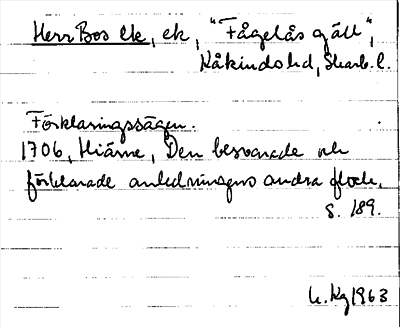 Herr Bos Ek, ek, "Fågelås gäll",
Kåkinds hd, Skarb. l.
Förklaringssägen.
1706, Hiärne, Den besvarade och
förklarade anledningens andra flock,
s. 189.
1963